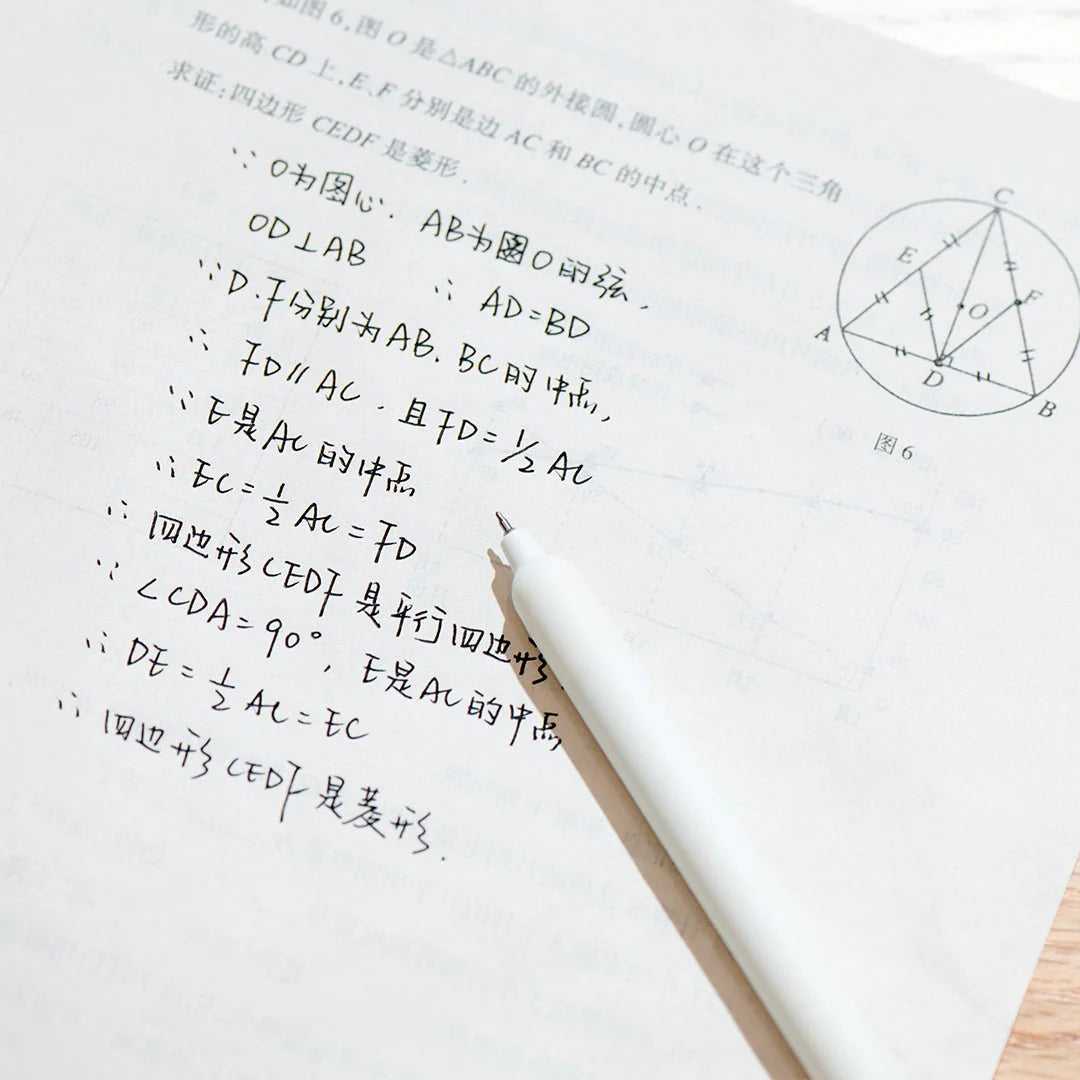 如图 6,圆 O 是△ABC 的外接圆,圆心 O 在这个三角
形的高 CD 上,E、F 分别是边 AC 和 BC 的中点.
求证:四边形 CEDF 是菱形.
∵ O为圆心. AB为圆O的弦,
OD⊥AB ∴ AD=BD
∵ D.F分别为AB. BC的中点,
∴ FD∥AC . 且FD=1/2 AC
∵ E是AC的中点
∴ EC=1/2 AC=FD
∴ 四边形CEDF是平行四边形.
∵ ∠CDA=90°, E是AC的中点
∴ DE=1/2 AC=EC
∴ 四边形CEDF是菱形.
C
E
F
O
A
D
B
图 6